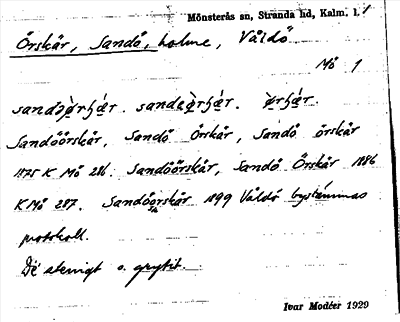 Mönsterås sn, Stranda hd, Kalm. l.
Örskär, Sandö, holme, Våldö
Mö 1
Sandöörskär, Sandö Örskär, Sandö örskär
1875 K Mö 286. Sandöörskär, Sandö Örskär 1886
K Mö 287. Sandöörskär 1899 Våldö bystämmas
protokoll.
De' stenigt o. grytit.
Ivar Modéer 1929